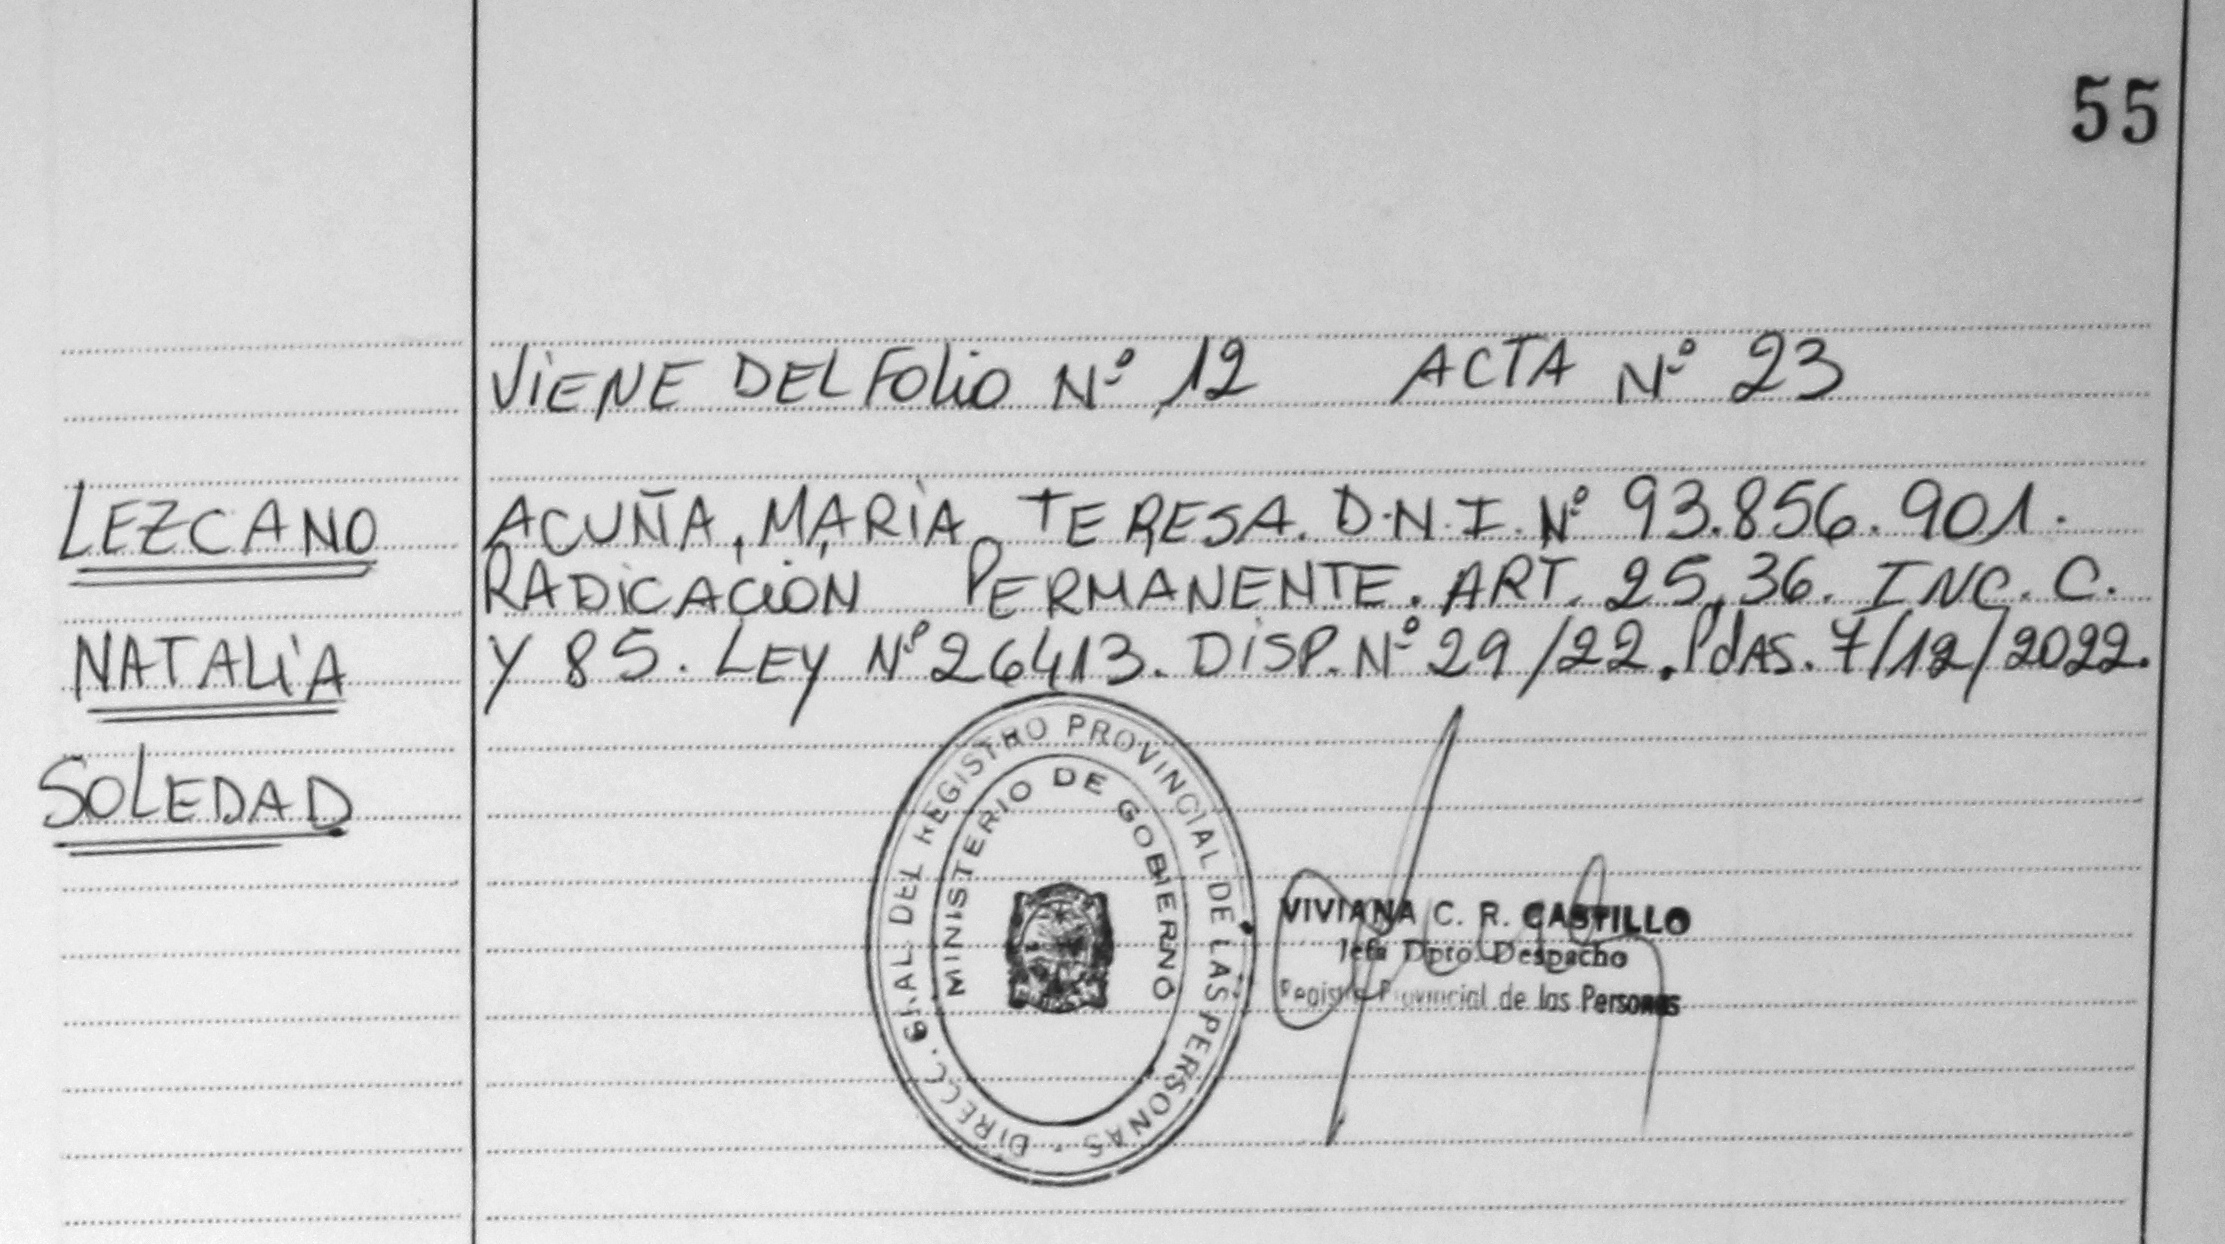 55
VIENE DEL FOLIO Nº 12 ACTA Nº 23
LEZCANO
NATALIA
SOLEDAD
ACUÑA, MARIA TERESA. D.N.I. Nº 93.856.901.
RADICACIÓN PERMANENTE. ART. 25, 36. INC. C.
Y 85. LEY Nº 26413. DISP. Nº 29/22. PdAS. 7/12/2022.
DIRECC. GRAL. DEL REGISTRO PROVINCIAL DE LAS PERSONAS
MINISTERIO DE GOBIERNO
VIVIANA C. R. CASTILLO
Jefa Dpto. Despacho
Registro Provincial de las Personas